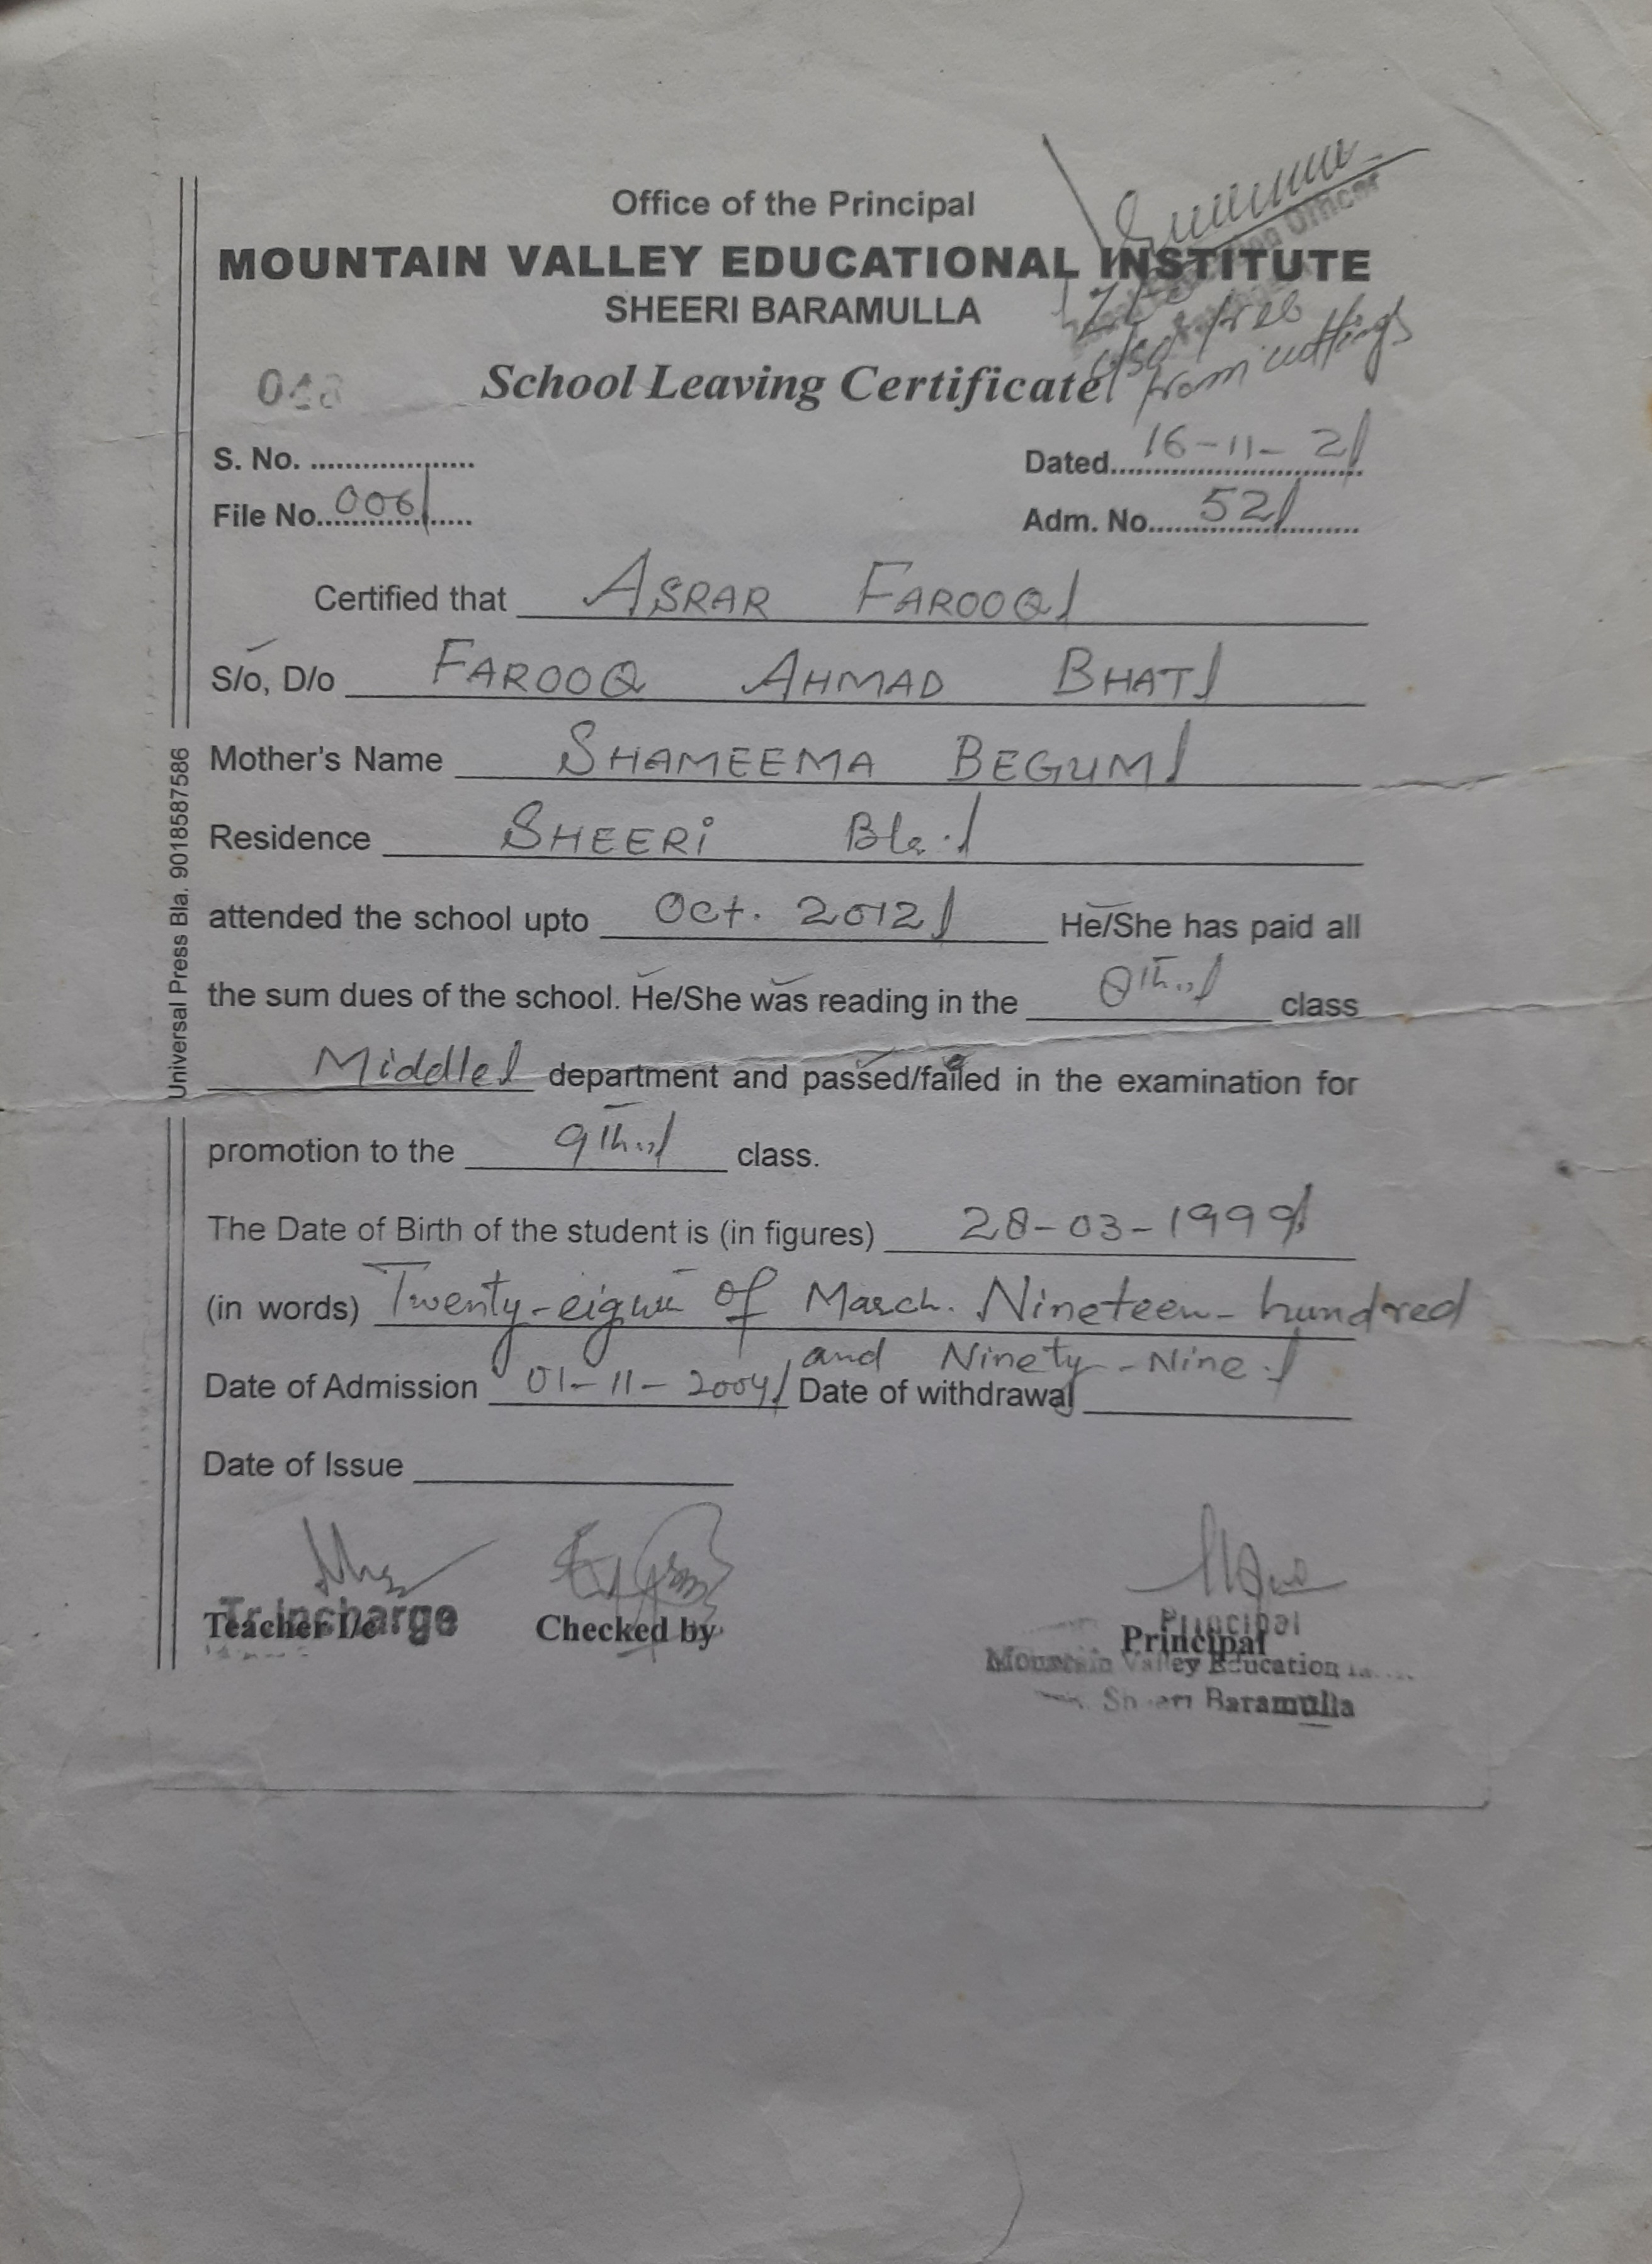 Office of the Principal
MOUNTAIN VALLEY EDUCATIONAL INSTITUTE
SHEERI BARAMULLA
School Leaving Certificate
also free
from cuttings
S. No. ..................
Dated 16-11-21
File No. 006
Adm. No. 521
Certified that ASRAR FAROOQ
S/o, D/o FAROOQ AHMAD BHAT
Mother's Name SHAMEEMA BEGUM
Residence SHEERI Bla.
attended the school upto Oct. 2012 He/She has paid all
the sum dues of the school. He/She was reading in the 8th class
Middle department and passed/failed in the examination for
promotion to the 9th class.
The Date of Birth of the student is (in figures) 28-03-1999
(in words) Twenty-eight of March. Nineteen-hundred
and Ninety-Nine
Date of Admission 01-11-2004 Date of withdrawal
Date of Issue
Tr. Incharge
Teacher I/c Checked by Principal
Principal
Mountain Valley Education
Sheeri Baramulla
Universal Press Bla. 9018587586